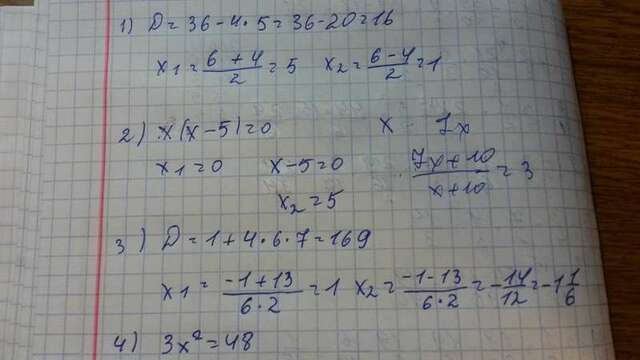 1) D = 36 - 4 · 5 = 36 - 20 = 16
x₁ = (6 + 4)/2 = 5   x₂ = (6 - 4)/2 = 1
2) x(x - 5) = 0   x - 7x
x₁ = 0   x - 5 = 0   (7x + 10)/(x + 10) = 3
x₂ = 5
3) D = 1 + 4 · 6 · 7 = 169
x₁ = (-1 + 13)/(6 · 2) = 1   x₂ = (-1 - 13)/(6 · 2) = -14/12 = -1 1/6
4) 3x² = 48